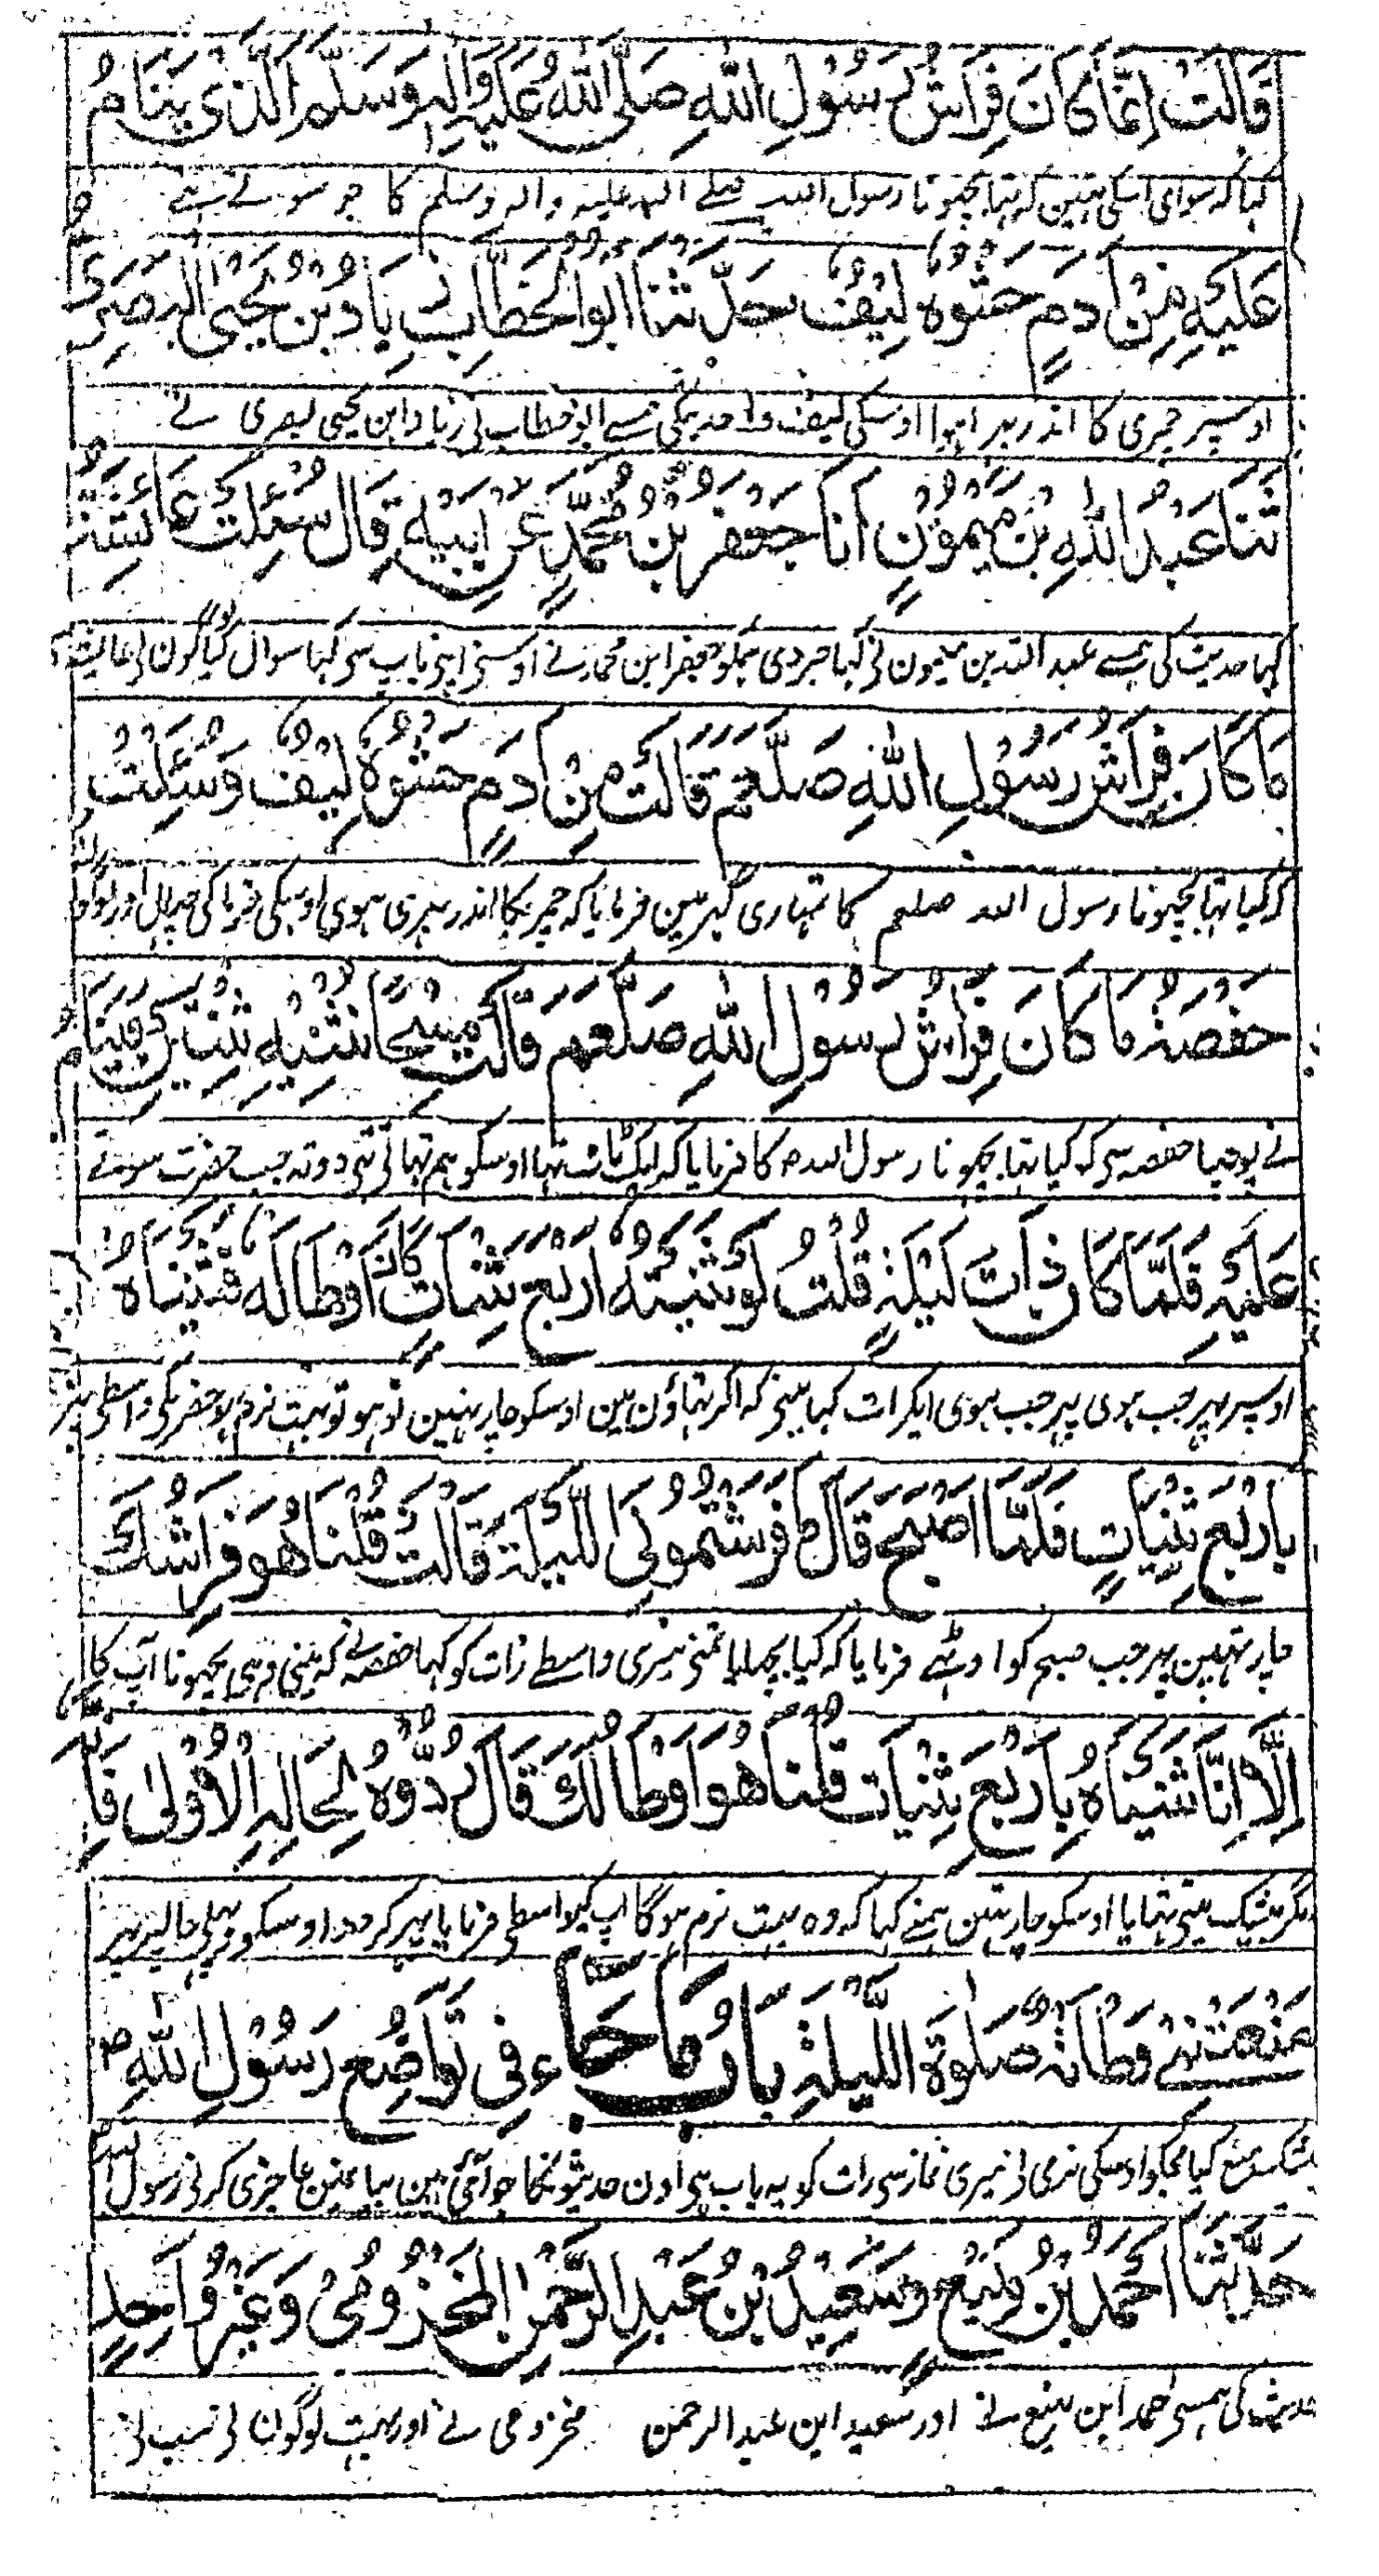 قَالَتْ اِنَّمَا كَانَ فِرَاشُ رَسُوْلِ اللّٰهِ صَلَّى اللّٰهُ عَلَيْهِ وَاٰلِهٖ وَسَلَّمَ الَّذِيْ يَنَامُ
کہا کہ سوای اسکی نہین کہ تہا بچہونا رسول اللہ صلے اللہ علیہ و الہ وسلم کا جو سوتے تہے
عَلَيْهِ مِنْ اَدَمٍ حَشْوُهٗ لِيْفٌ حدّثنا اَبُو الْخَطَّابِ زِيَادُ بْنُ يَحْيَى الْبَصَرِيُّ
اوسپر چمڑی کا اندر بہرا ہوا اوسکی لیف و احدیثکی ہمسے ابو خطاب نی زیاد ابن یحیی بصری نے
ثَنَا عَبْدُ اللّٰهِ بْنُ مَيْمُوْنٍ اَنَا جَعْفَرُ بْنُ مُحَمَّدٍ عَنْ اَبِيْهِ قَالَ سُئِلَتْ عَائِشَةُ
کہا حدیث کی ہمسے عبد اللہ بن میمون نی کہا خبر دی ہمکو جعفر ابن محمد نے اوسنی اپنی باپ سی کہا سوال کیا گیا لوگون نی عایشہ
مَا كَانَ فِرَاشُ رَسُوْلِ اللّٰهِ صَلَّعم قَالَتْ مِنْ اَدَمٍ حَشْوُهٗ لِيْفٌ وَسُئِلَتْ
کہ کیا تہا بچہونا رسول اللہ صلعم کا تمہاری گہر مین فرمایا کہ چمڑیکا اندر بہری ہوی اوسکی خرما کی چہال اور لوگون
حَفْصَةُ مَا كَانَ فِرَاشُ رَسُوْلِ اللّٰهِ صَلَّعم قَالَتْ مِسْحًا نَثْنِيْهِ ثَنِيَّتَيْنِ فَيَنَامُ
نے پوچہا حفصہ سی کہ کیا تہا بچہونا رسول اللہ ص کا فرمایا کہ ایک ٹاٹ تہا اوسکو ہم تہاتی تہی دو تہ جب حضرت سوتے
عَلَيْهِ فَلَمَّا كَانَ ذَاتَ لَيْلَةٍ قُلْتُ لَوْ ثَنَيْتُهٗ اَرْبَعَ ثَنِيَاتٍ كَانَ اَوْطَأَ لَهٗ فَثَنَيْنَاهُ
اوسپر پہر جب ہوی پہر جب ہوی ایکرات کہا مینی کہ اگر تہاؤن مین اوسکو چار تہین تو ہو تو بہت نرم ہو حضرتکی واسطی
بِاَرْبَعِ ثَنِيَاتٍ فَلَمَّا اَصْبَحَ قَالَ مَا فَرَشْتُمُوْلِيَ اللَّيْلَةَ قَالَتْ قُلْنَا هُوَ فِرَاشُكَ
چار تہین پہر جب صبح کو اوٹہے فرمایا کہ کیا بچہایا تمنی میری واسطے رات کو کہا حفصہ نے کہ مینی وہی بچہونا آپ کا
اِلَّا اَنَّا ثَنَيْنَاهُ بِاَرْبَعِ ثَنِيَاتٍ قُلْنَا هُوَ اَوْطَأُ لَكَ قَالَ رُدُّوْهُ لِحَالِهِ الْاُوْلٰى فَاِنَّهٗ
مگر بیشک مینی تہایا اوسکو چار تہین ہمنے کہا کہ وہ بہت نرم ہوگا آپ کیواسطی فرمایا پہر کر دو اوسکو پہلی حالپر پہر
مَنَعَتْنِيْ وَطَاَتُهٗ صَلٰوةَ اللَّيْلَةِ بَابُ مَا جَاءَ فِيْ تَوَاضُعِ رَسُوْلِ اللّٰهِ ص
بیشک منع کیا مجکو اوسکی نرمی نی میری نماز سی رات کو یہ باب ہی اون حدیثونکا جو آئی ہین بیان مین عاجزی کرنی رسول اللہ
حَدَّثَنَا اَحْمَدُ بْنُ مَنِيْعٍ وَسَعِيْدُ بْنُ عَبْدِ الرَّحْمٰنِ الْمَخْزُوْمِيُّ وَغَيْرُ وَاحِدٍ
حدیث کی ہمسی احمد ابن منیع نے اور سعید ابن عبد الرحمن مخزومی نے اور بہت لوگون نی سب نی